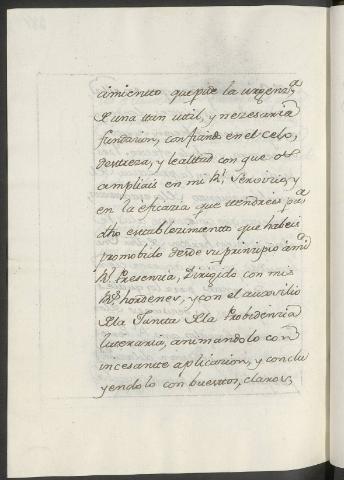 amiento que pide la urgenz.ª
de una tan util, y nezesaria
fundazion, confiando en el celo,
destreza, y lealtad con que os
ampliais en mi R.l Servizio, y
en la eficazia que tendreis p.ª
dho establezimiento que habeis
promobido desde su prinzipio â mi
R.l Presenzia, Dirigido con mis
R.s hordenes, y con el auxsilio
de la Junta de la Probidenzia
luteraria, animandolo con
incesante aplicazion, y conclu
yendolo con buestros, claros,